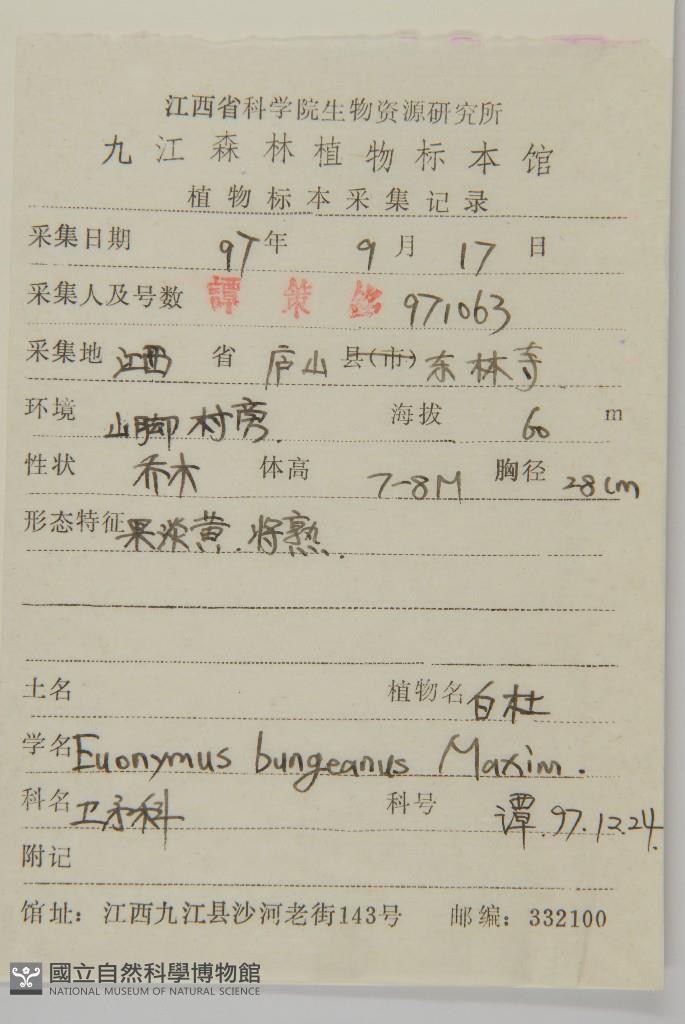 江西省科学院生物资源研究所
九江森林植物标本馆
植物标本采集记录
采集日期 97年 9月 17日
采集人及号数 譚策铭 971063
采集地 江西 省 庐山 县(市) 东林寺
环境 山脚村旁. 海拔 60 m
性状 乔木 体高 7-8M 胸径 28cm
形态特征 果淡黄.将熟.
土名 植物名 白杜
学名 Euonymus bungeanus Maxim.
科名 卫矛科 科号 谭.97.12.24.
附记
馆址：江西九江县沙河老街143号 邮编：332100
國立自然科學博物館
NATIONAL MUSEUM OF NATURAL SCIENCE